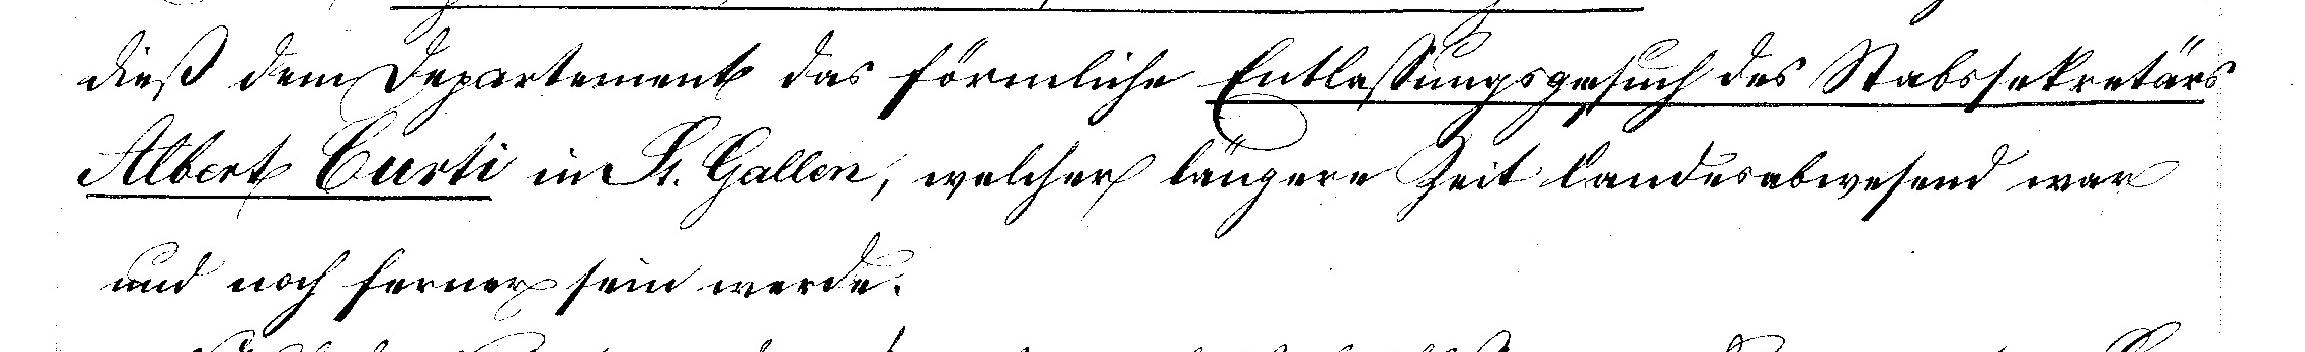 dieß dem Departement das förmliche Entlassungsgesuch des Stabssekretärs
Albert Curti in St. Gallen, welcher längere Zeit landesabwesend war
und noch ferner sein werde.